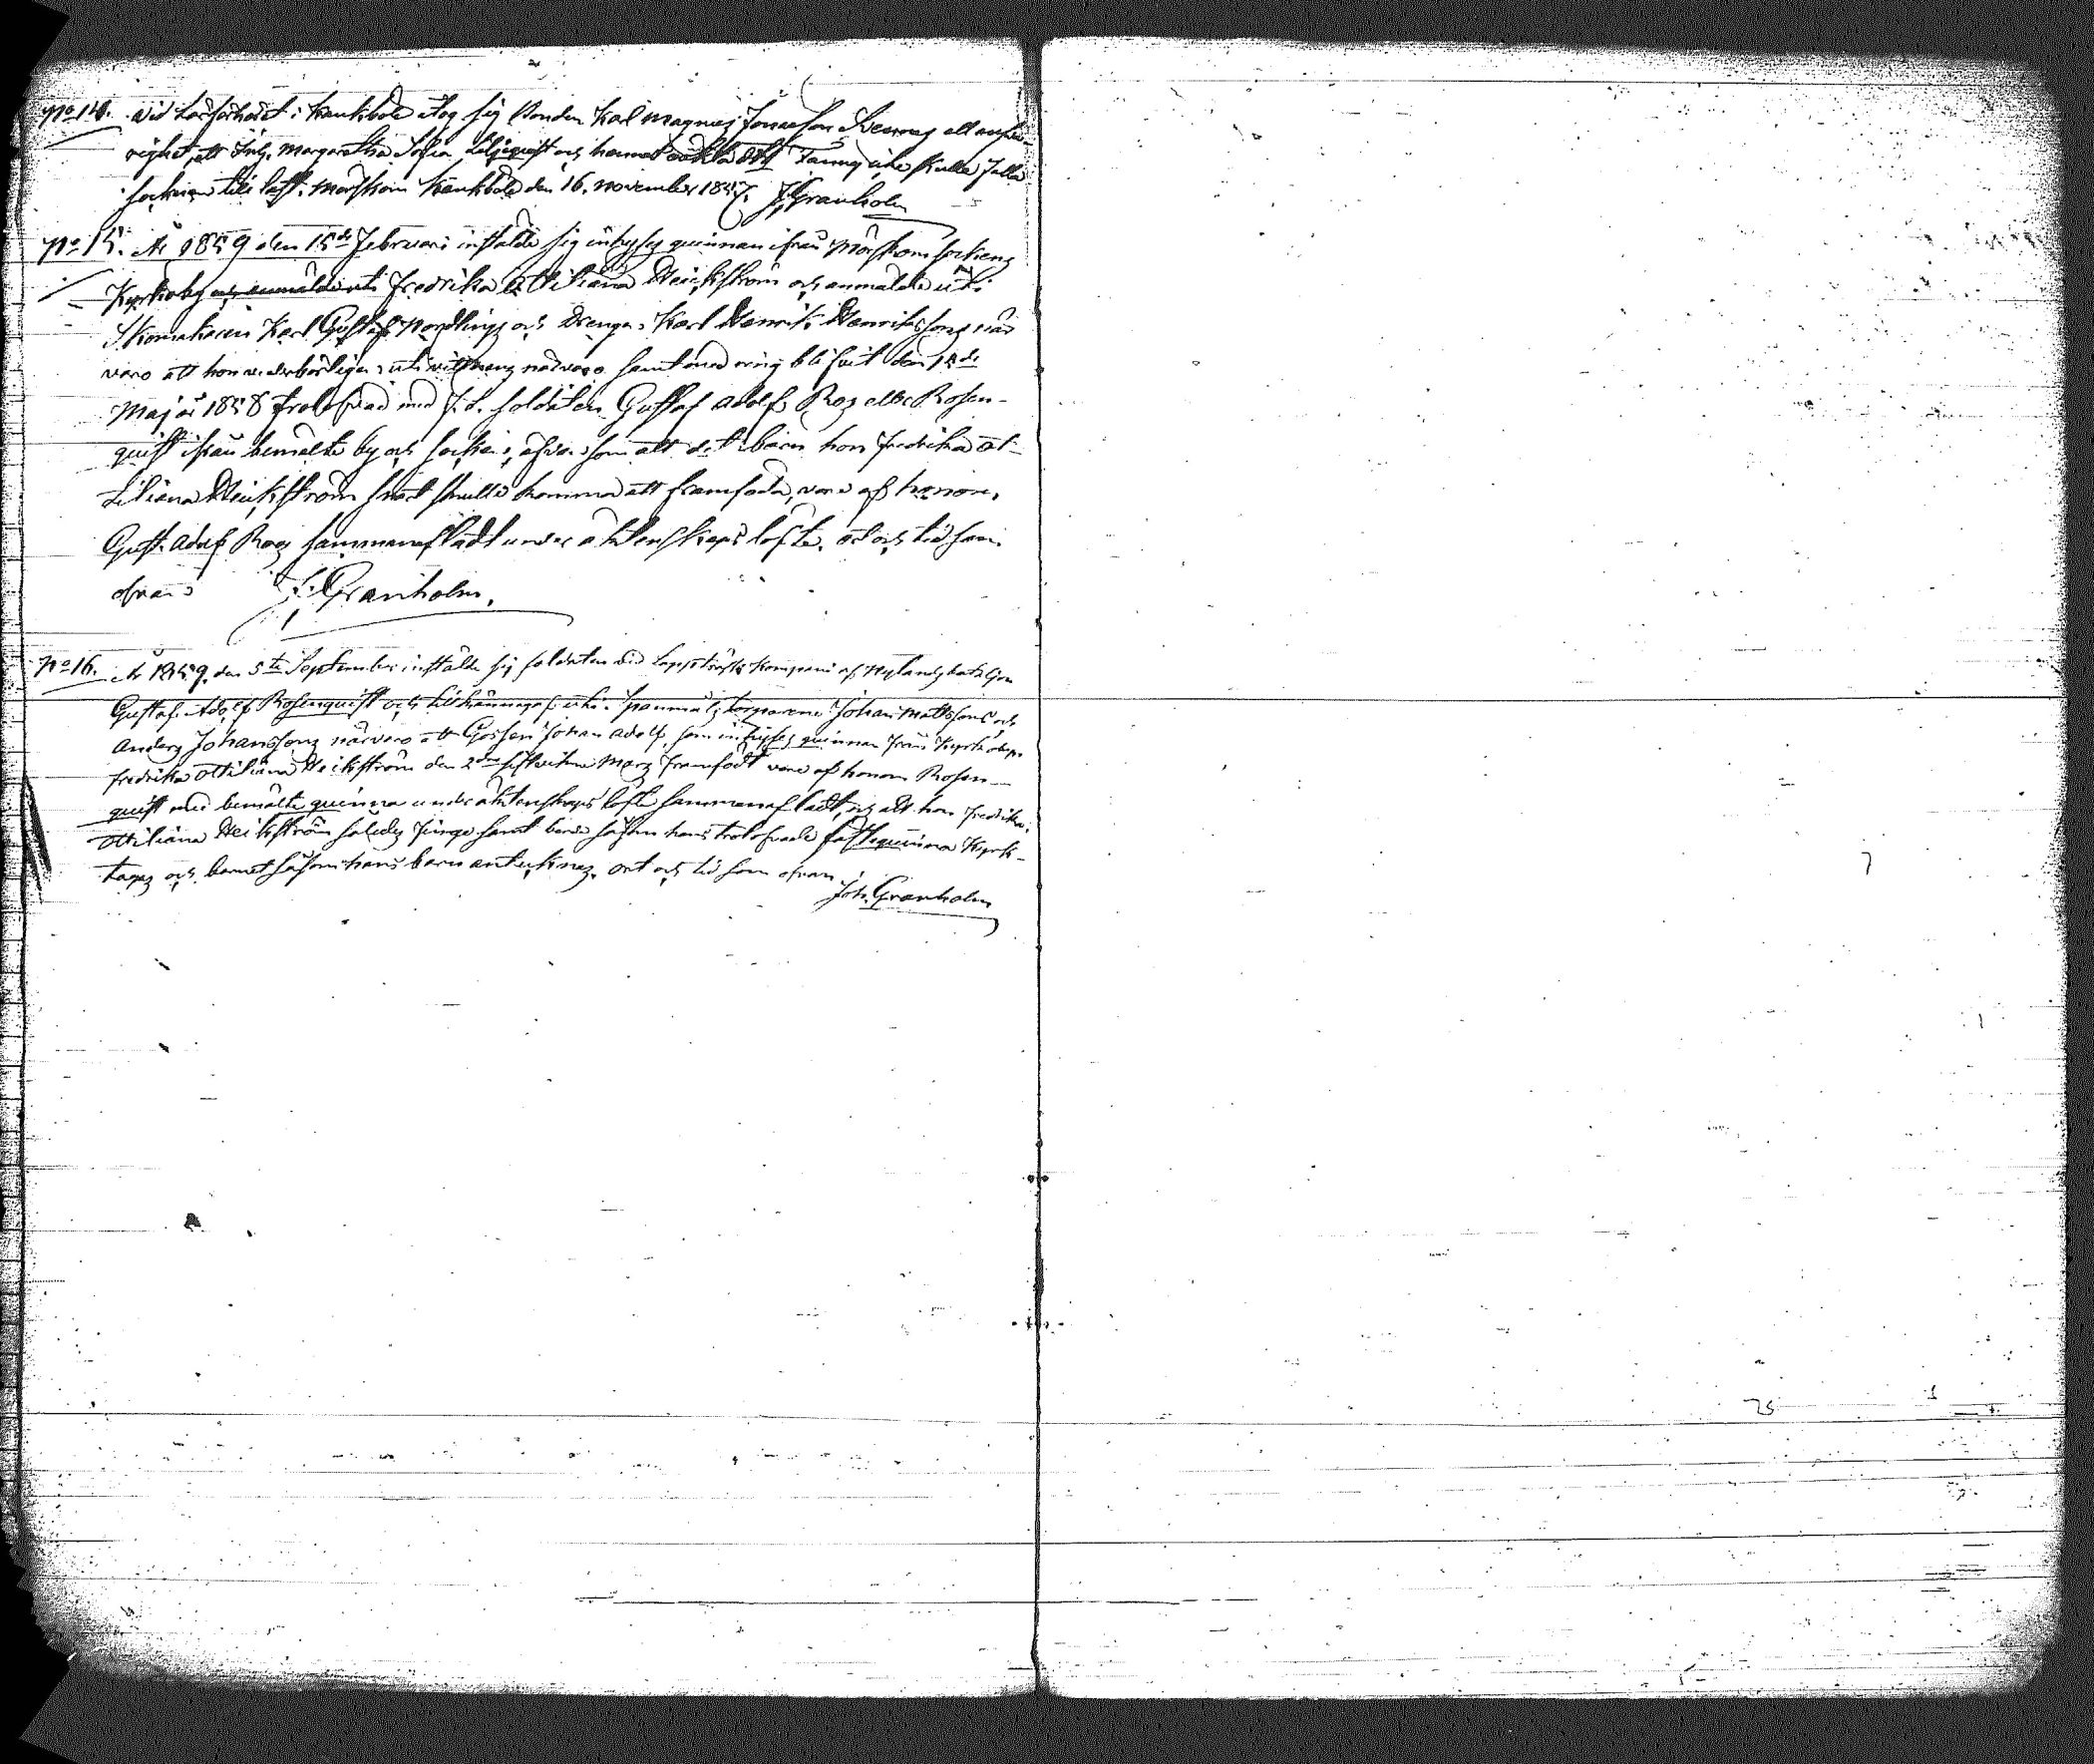 No 14. Vid Läsförhöret i Kankböle åtog sig Bonden Karl Magnus Jonaeson Svennas all ansva-
righet, att Inh. Margaretha Sofia Liljeqvist och hennes oäkta
Socknen till last. Mörskom Kankböle den 16. November 1857. J. Granholm
No 15. År 1859 den 15de Februari instälde sig inhyses quinnan ifrån Mörskom sockens
Kyrkoby och anmälde uti Fredrika Ottiliana Weickström och anmälde uti
Skomakaren Karl Gustaf Nordlings och Drengen Karl Henrik Henrikssons när-
varo att hon vederbörligen uti vittnens närvaro samt med ring blifvit den 1de
Maj år 1858 trolofvad med f.d. soldaten Gustaf Adolf Ros eller Rosen-
quist ifrån bemälte by och socken, äfven som att det barn hon Fredrika Ot-
tiliana Weickström snart skulle komma att framföda, vore af honom,
Gust. Adolf Ros sammanafladt under äktenskaps löfte. Ort och tid som
ofvan J. Granholm.
No 16. År 1859. den 5te September instälde sig soldaten vid Lappträsk Kompani af Nylands bataljon
Gustaf Adolf Rosenquist och tillkännagaf uti Torparene Johan Mattssons och
Anders Johanssons närvaro att Gossen Johan Adolf, som inhyses quinnan från Kyrkoby
Fredrika Ottiliana Weickström den 2dra sistvikne Mars framfödt vore af honom Rosen-
quist med bemälte quinna under äktenskaps löfte sammanafladt, och att hon Fredrika
Ottiliana Weickström således finge samt borde såsom hans trolofvade fästequinna Kyrk-
tagas och barnet såsom hans barn antecknas. Ort och tid som ofvan.
Joh. Granholm